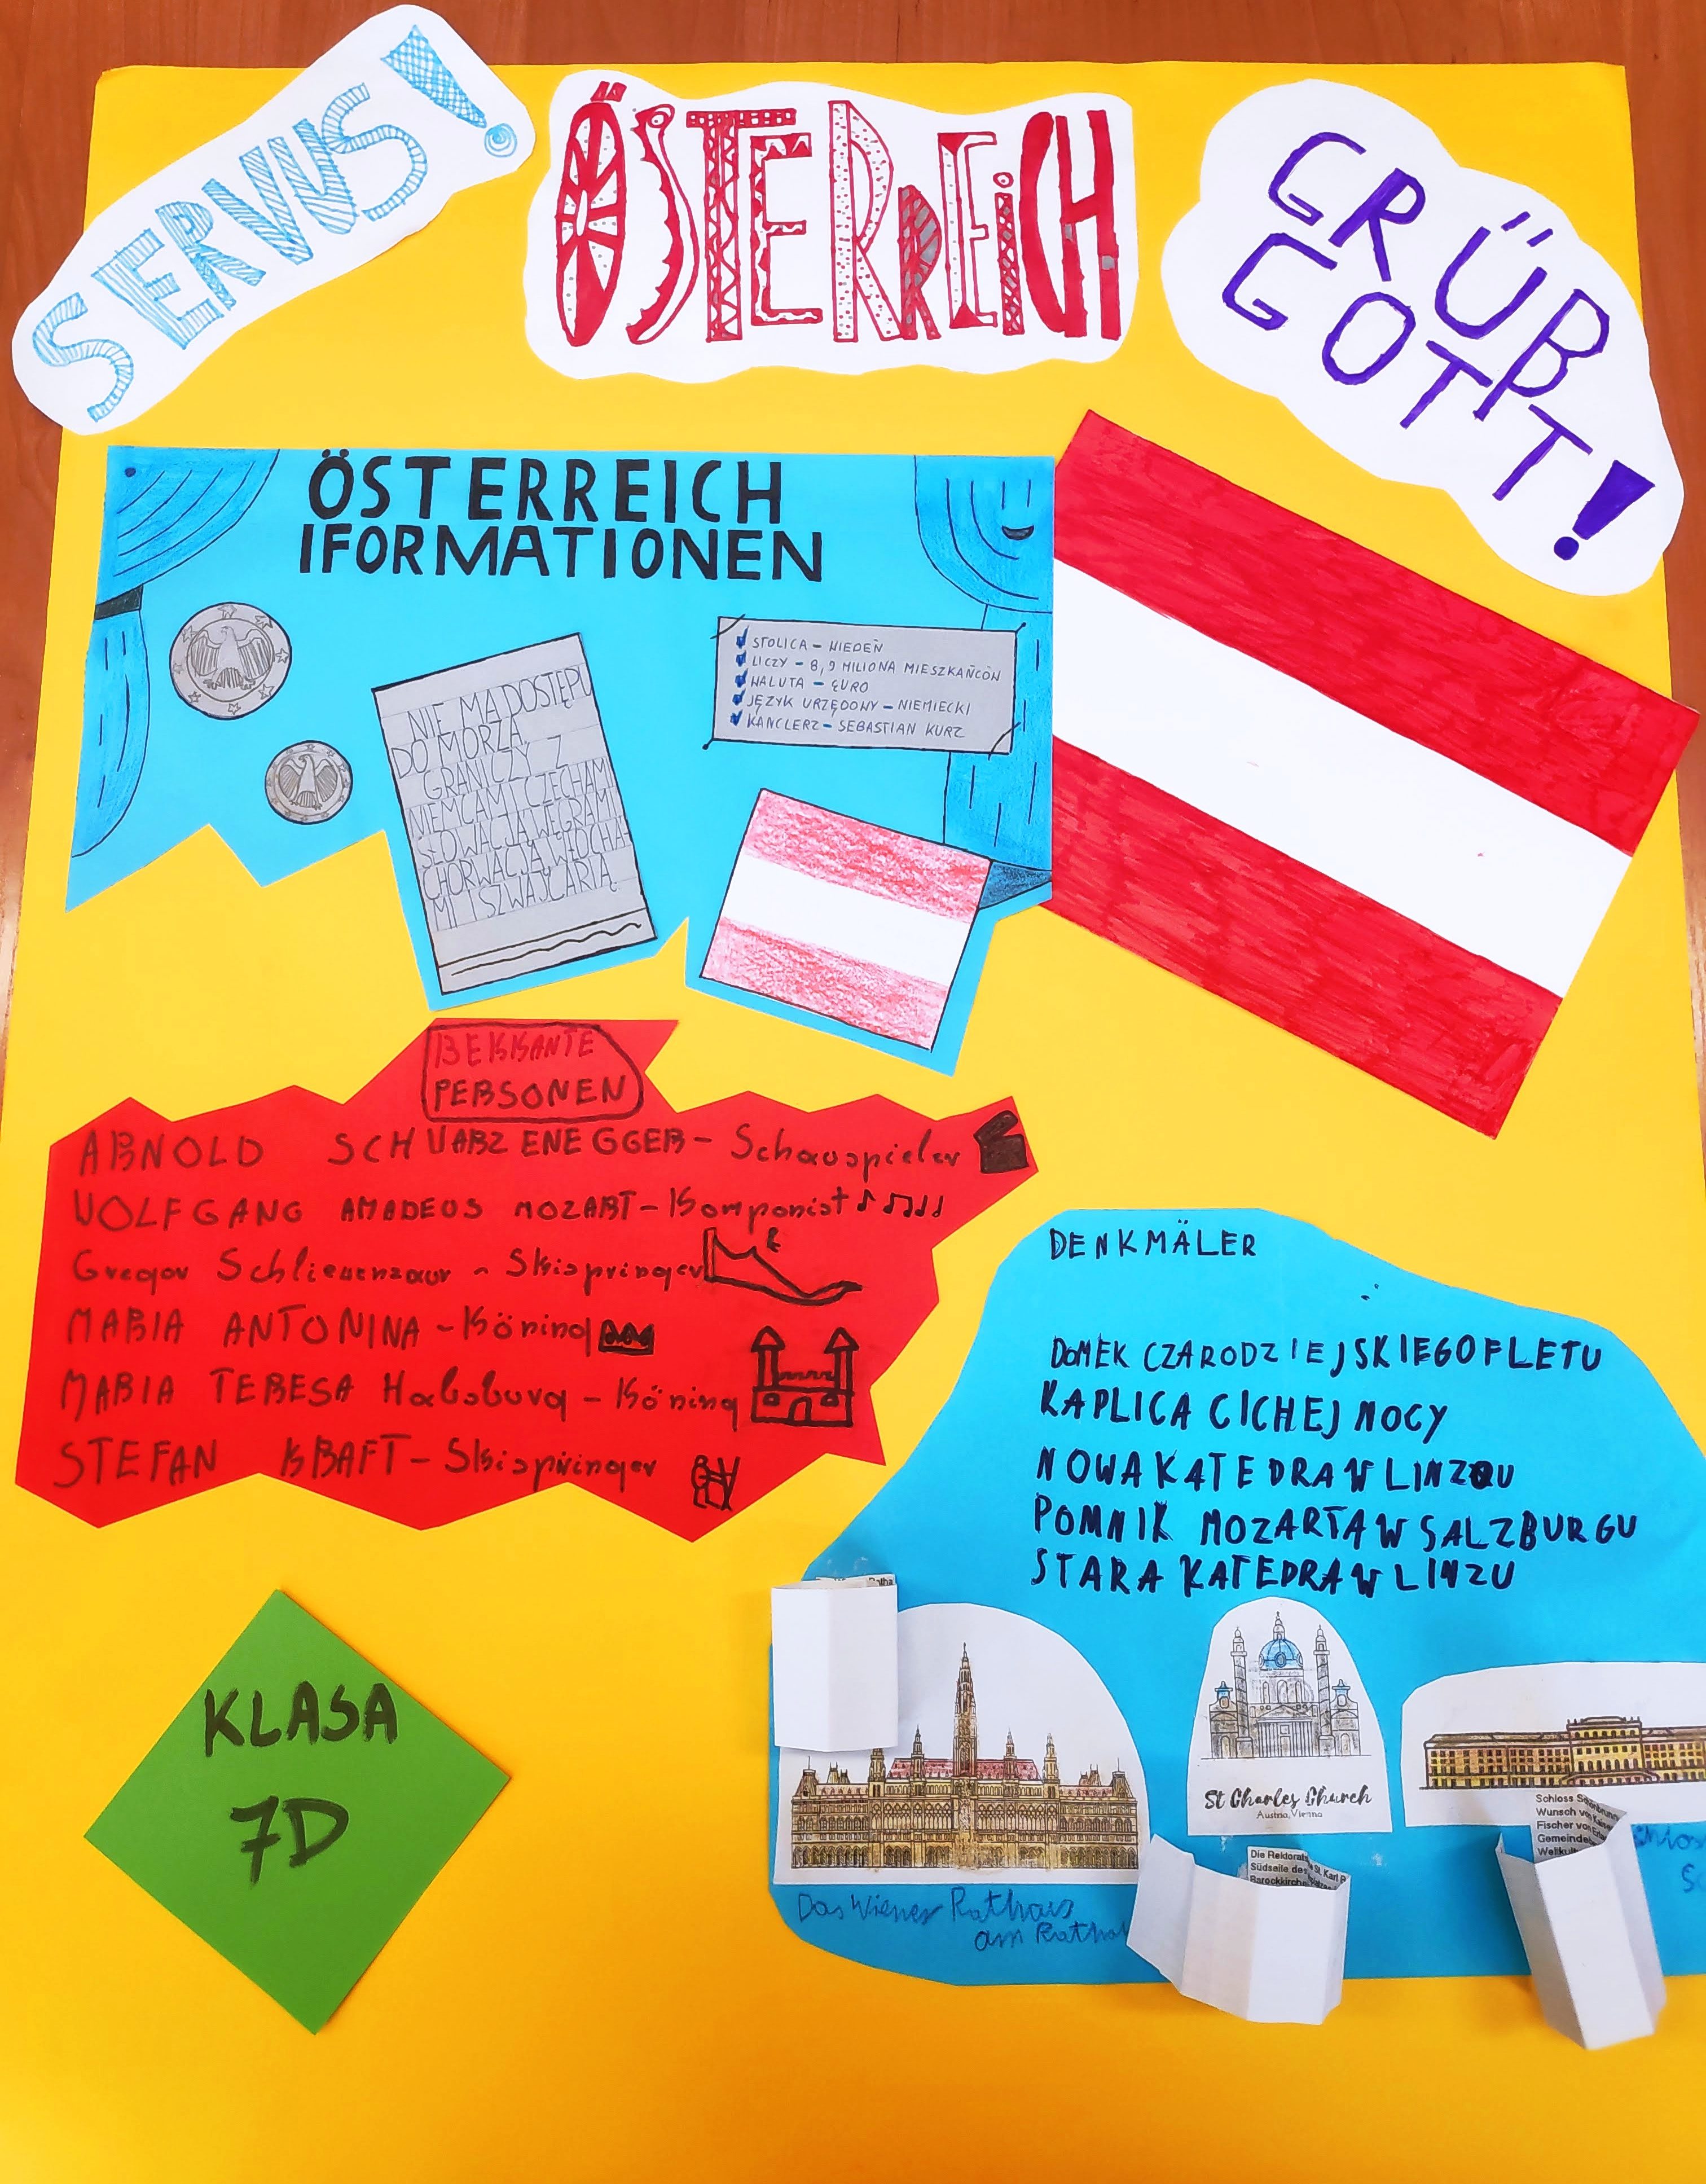 SERVUS!
ÖSTERREICH
GRÜß
GOTT!
ÖSTERREICH
IFORMATIONEN
NIE MA DOSTĘPU
DO MORZA
GRANICZY Z
NIEMCAMI CZECHAMI
SŁOWACJĄ WĘGRAMI
CHORWACJĄ, WŁOCHA-
MI I SZWAJCARIĄ.
STOLICA – WIEDEŃ
LICZY – 8,9 MILIONA MIESZKAŃCÓW
WALUTA – EURO
JĘZYK URZĘDOWY – NIEMIECKI
KANCLERZ – SEBASTIAN KURZ
BEKKANTE
PERSONEN
ARNOLD SCHWARZENEGGER – Schauspieler
WOLFGANG AMADEUS MOZART – Komponist
Gregor Schlierenzaur – Skispringer
MARIA ANTONINA – Köning
MARIA TERESA Habsburg – Köning
STEFAN KRAFT – Skispringer
DENKMÄLER
DOMEK CZARODZIEJSKIEGO FLETU
KAPLICA CICHEJ NOCY
NOWA KATEDRA W LINZU
POMNIK MOZARTA W SALZBURGU
STARA KATEDRA W LINZU
St Charles Church
Austria, Vienna
Schloss
Wunsch
Fischer von
Die
Südseite des St. Karl
Barockkirche
Das Wiener Rathaus
am
KLASA
7D